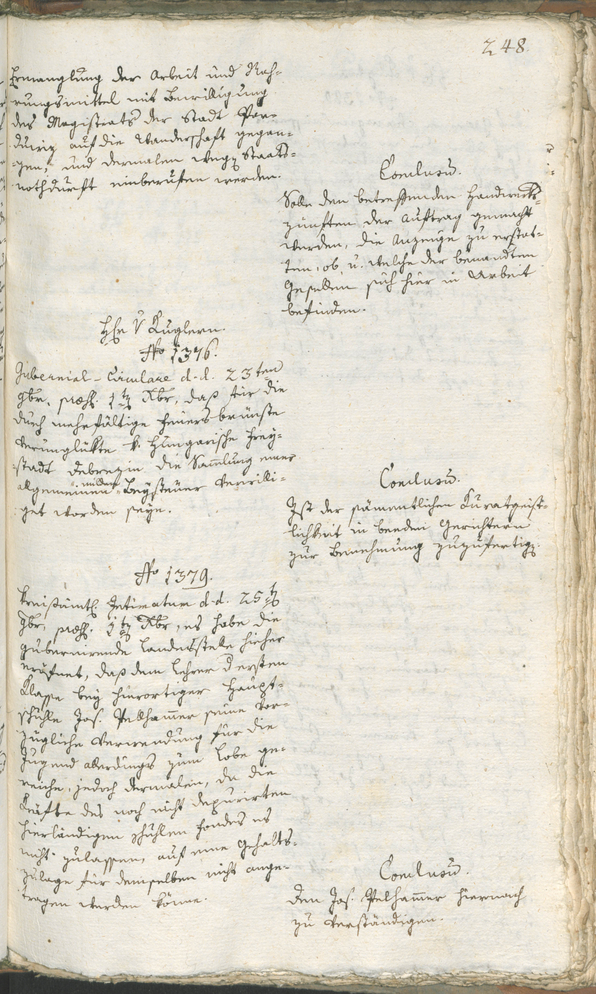 248.
Ermanglung der Arbeit und Nah-
rungsmittel mit Bewilligung
des Magistrats der Stadt Par-
dubiz auf die Wanderschaft gegan-
gen, und dermalen wegen Staats-
nothdurft einberufen werden.
Conclusum.
Solle den betreffenden Handwerks-
zünften der Auftrag gemacht
werden, die Anzeige zu erstat-
ten, ob, u. welche der benandten
Gesellen sich hier in Arbeit
befinden.
H. v. Kuglern.
No 1376.
Gubernial-Circulare d. d. 23ten
9br. praes. 1ten Xbr, daß für die
durch mehrfältige Feuersbrünste
verunglükte k. Hungarische Frey-
stadt Debrezin die Sammlung einer
allgemeinen milden Beysteuer bewilli-
get worden seye.
Conclusum.
Ist der sämmentlichen Kuratgeist-
lichkeit in beeden Gerichtern
zur Benehmung zuzufertigen.
No 1379.
Kreisämtl. Intimatum d. d. 25ten
9br. praes. 1ten Xbr, es habe die
gubernirende Landesstelle hieher
eröfnet, daß dem Lehrer der ersten
Klasse bey hierortiger Haupt-
schühle Jos. Pelhammer seine vor-
zügliche Verwendung für die
Jugend allerdings zum Lobe ge-
reiche, jedoch dermalen, da die
Kräfte des noch nicht depurirten
hierländigen Schühlen Fondes es
nicht zulassen, auf eine Gehalts-
zulage für demselben nicht ange-
tragen werden könne.
Conclusum.
Den Jos. Pelhammer hiernach
zu verständigen.